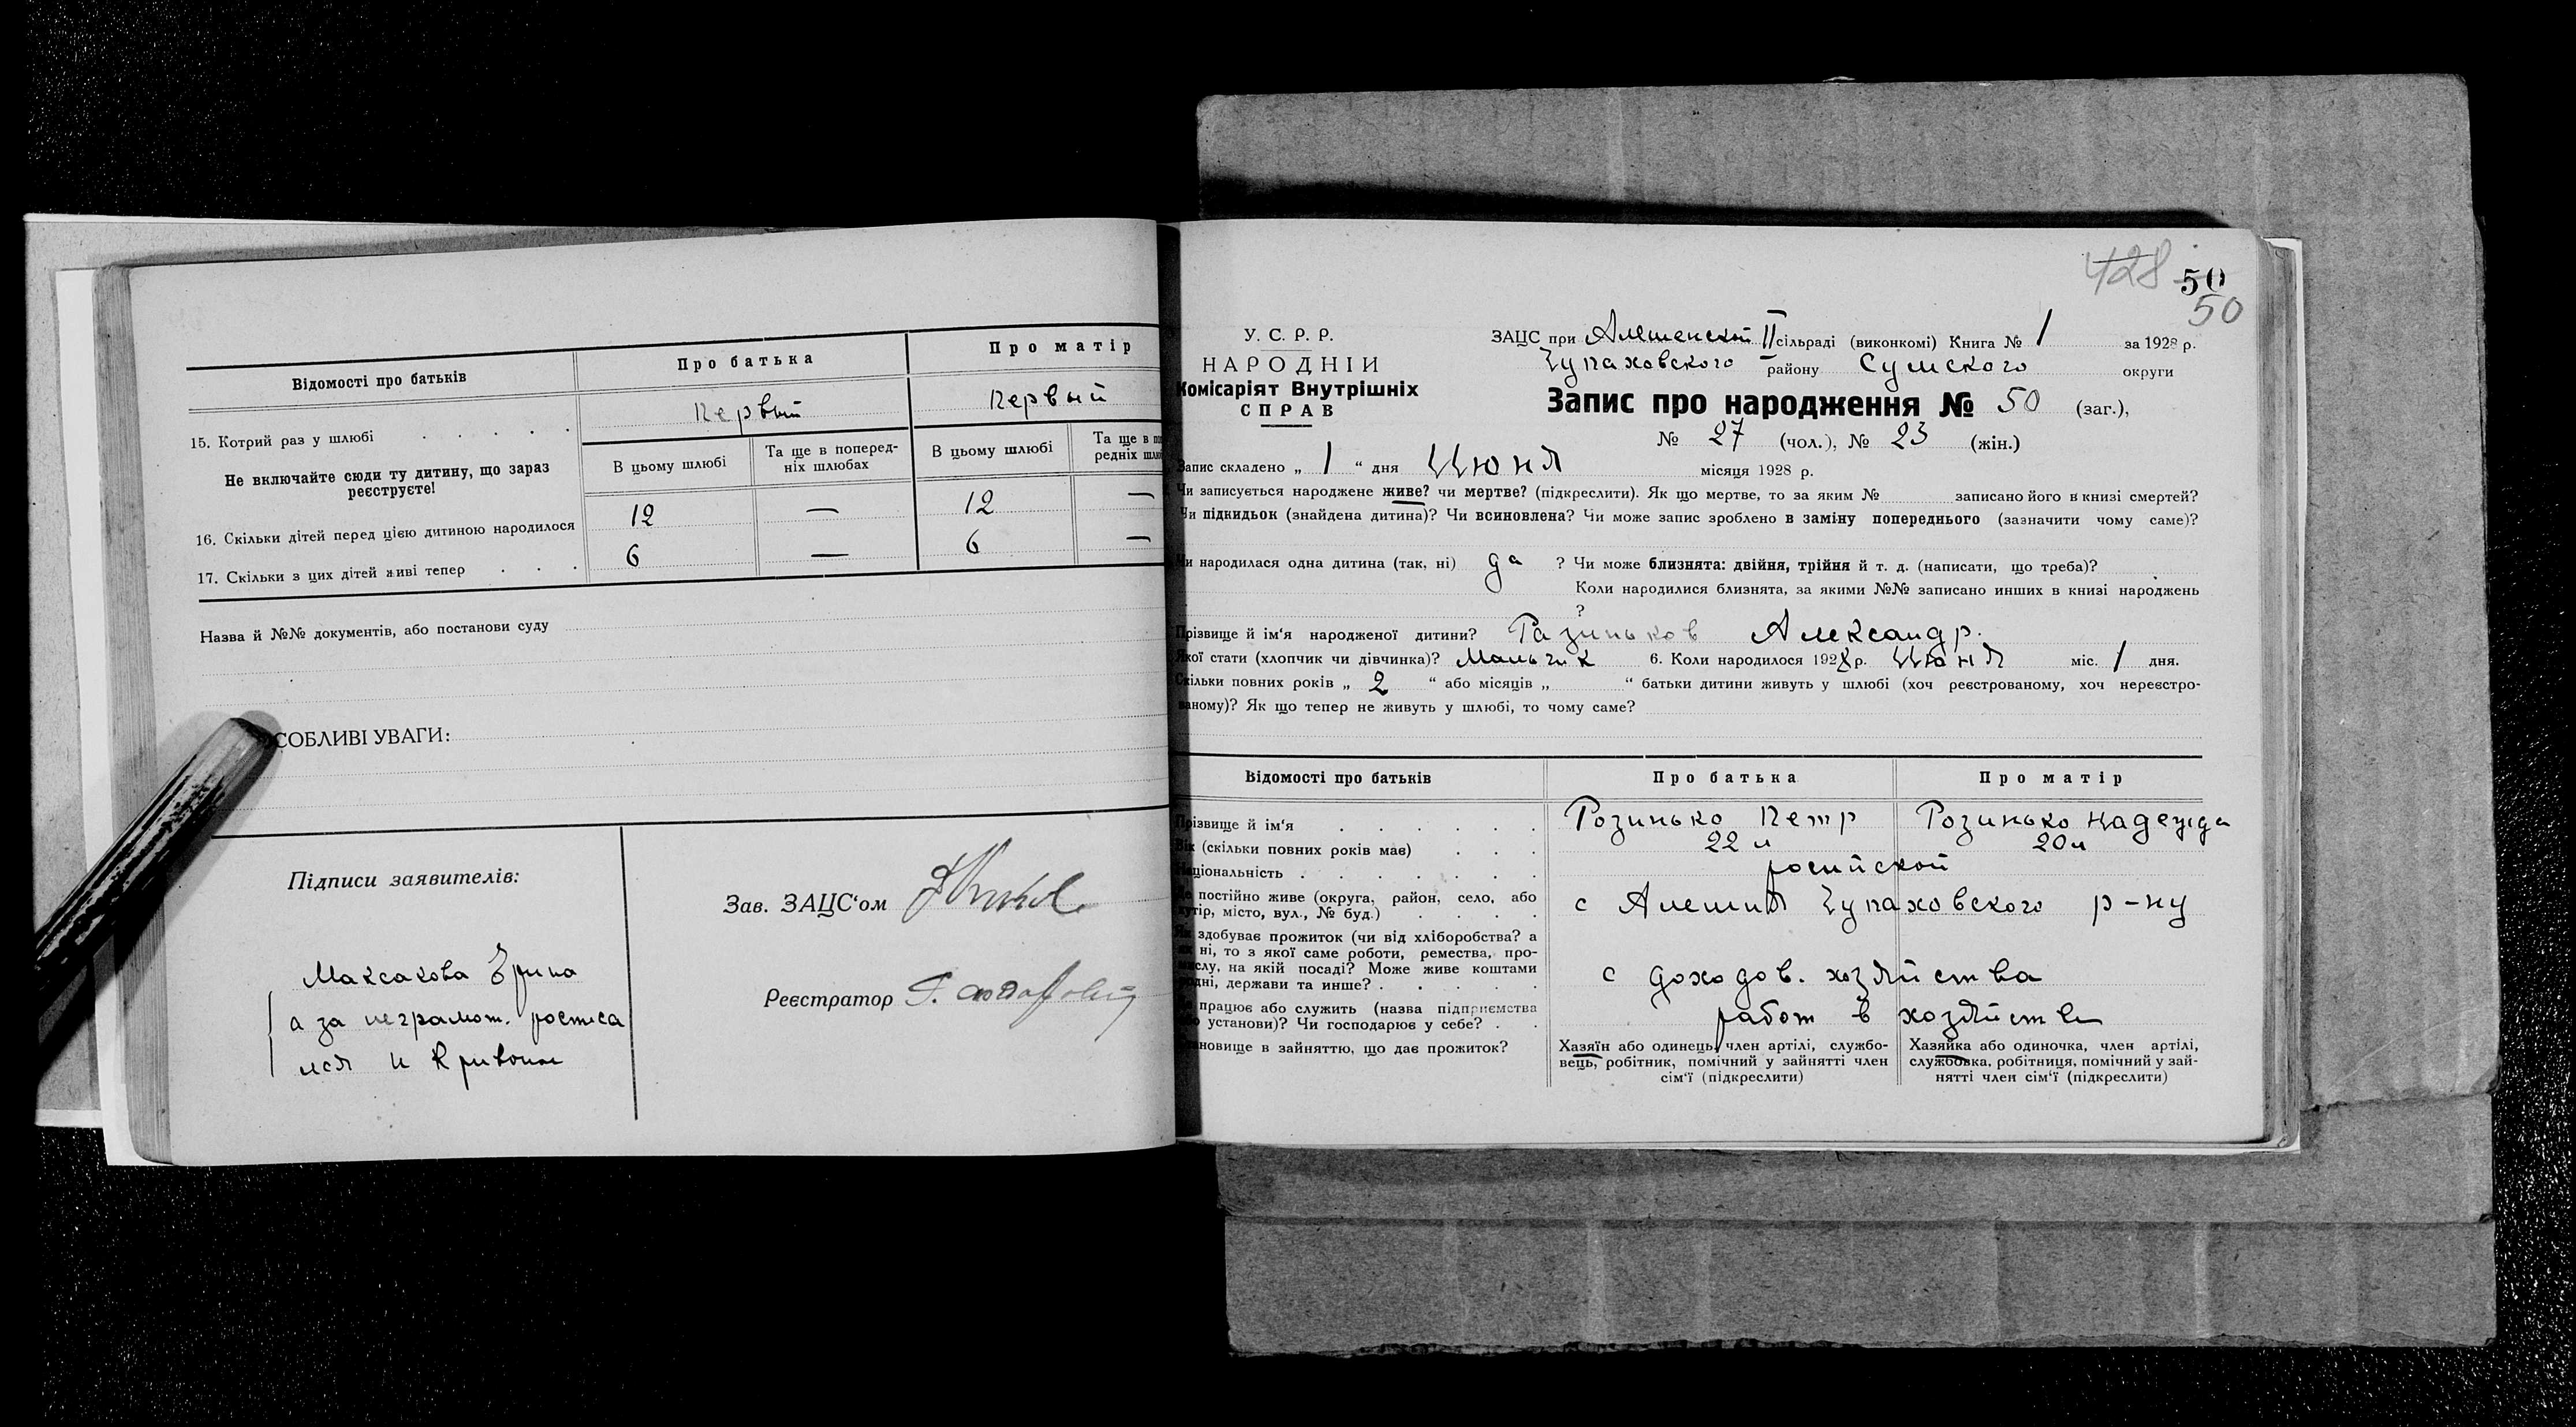 Відомості про батьків
Про батька
Про матір
15. Котрий раз у шлюбі . . . . .
Первый
Первый
Не включайте сюди ту дитину, що зараз
реєструєте!
В цьому шлюбі
Та ще в поперед-
ніх шлюбах
В цьому шлюбі
Та ще в по
редніх шлю
16. Скільки дітей перед цією дитиною народилося
12
—
12
—
17. Скільки з цих дітей живі тепер . . .
6
—
6
—
Назва й №№ документів, або постанови суду
СОБЛИВІ УВАГИ:
Підписи заявителів:
Максакова Ирина
а за неграмот. росписа
лся И Кривонос
Зав. ЗАЦС‘ом
Реєстратор
428 50
50
У. С. Р. Р.
НАРОДНІЙ
Комісаріят Внутрішніх
СПРАВ
ЗАЦС при Алешенской II сільраді (виконкомі) Книга № 1 за 1928 р.
Чупаховского району Сумского округи
Запис про народження № 50 (заг.),
№ 27 (чол.), № 23 (жін.)
Запис складено „ 1 “ дня Июня місяця 1928 р.
Чи записується народжене живе? чи мертве? (підкреслити). Як що мертве, то за яким № записано його в книзі смертей?
Чи підкидьок (знайдена дитина)? Чи всиновлена? Чи може запис зроблено в заміну попереднього (зазначити чому саме)?
Чи народилася одна дитина (так, ні) да ? Чи може близнята: двійня, трійня й т. д. (написати, що треба)?
Коли народилися близнята, за якими №№ записано инших в книзі народжень
?
Прізвище й ім‘я народженої дитини? Разиньков Александр.
Якої стати (хлопчик чи дівчинка)? Мальчик 6. Коли народилося 1928 р. Июня міс. 1 дня.
Скільки повних років „ 2 “ або місяців „ “ батьки дитини живуть у шлюбі (хоч реєстрованому, хоч нереєстро-
ваному)? Як що тепер не живуть у шлюбі, то чому саме?
Відомості про батьків
Про батька
Про матір
Прізвище й ім‘я . . . . . .
Розинько Петр
Розинько Надежда
Вік (скільки повних років має) . . .
22 л
20 л
Національність . . . . . . .
росийской
Де постійно живе (округа, район, село, або
хутір, місто, вул., № буд.) . . . .
с Алешня Чупаховского р-ну
Як здобуває прожиток (чи від хліборобства? а
як ні, то з якої саме роботи, ремества, про-
мислу, на якій посаді? Може живе коштами
родні, держави та инше? . . . . .
с доходов. хозяйства
працює або служить (назва підприємства
або установи)? Чи господарює у себе? . .
работ в хозяйстве
становище в зайняттю, що дає прожиток?
Хазяїн або одинець, член артілі, службо-
вець, робітник, помічний у зайнятті член
сім‘ї (підкреслити)
Хазяйка або одиночка, член артілі,
службовка, робітниця, помічний у зай-
нятті член сім‘ї (підкреслити)